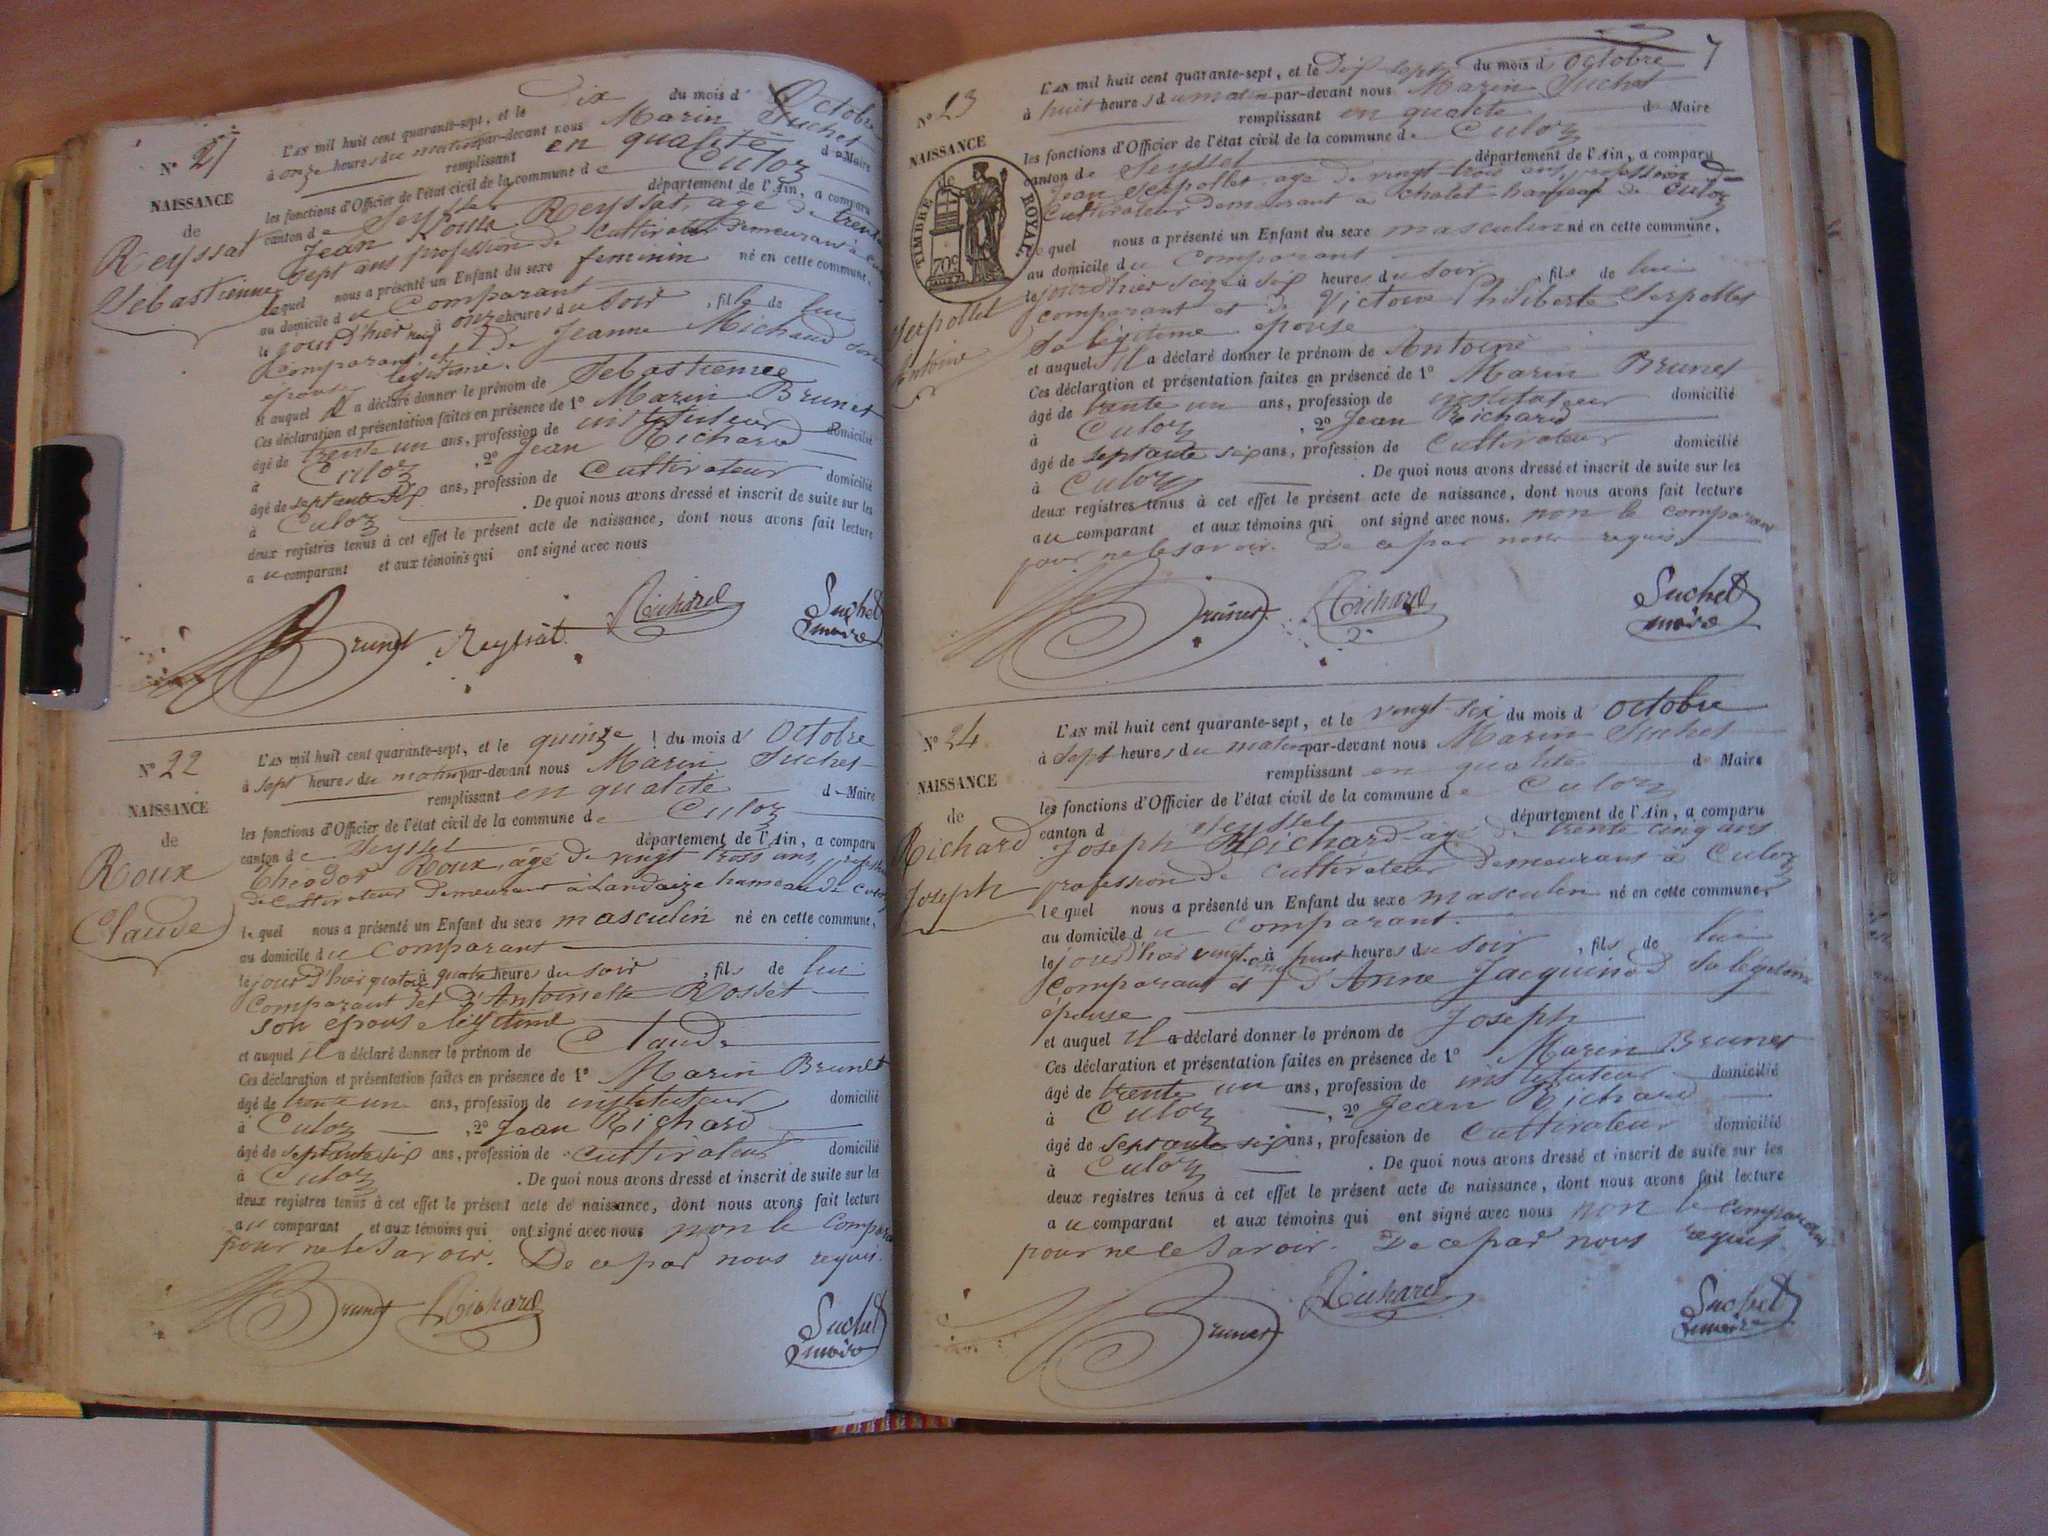 N° 21
NAISSANCE
de
Reyssat
Sebastienne
L'AN mil huit cent quarante-sept, et le dix du mois d'Octobre
à onze heures du matin par-devant nous Marin Suchet
remplissant en qualité de Maire
les fonctions d'Officier de l'état civil de la commune de Culoz
canton de Seyssel département de l'Ain, a comparu
Jean Reyssat, agé de trente
sept ans profession de Cultivateur demeurant à
lequel nous a présenté un Enfant du sexe feminin né en cette commune,
au domicile du Comparant
le jour d'hier neuf à onze heures du soir, fille de lui
Comparant et de Jeanne Michaud son
épouse légitime.
et auquel il a déclaré donner le prénom de Sebastienne
Ces déclaration et présentation faites en présence de 1° Marin Brunet
âgé de trente un ans, profession de instituteur domicilié
à Culoz, 2° Jean Richard
âgé de septante six ans, profession de Cultivateur domicilié
à Culoz. De quoi nous avons dressé et inscrit de suite sur les
deux registres tenus à cet effet le présent acte de naissance, dont nous avons fait lecture
au comparant et aux témoins qui ont signé avec nous
Brunet Reyssat Richard Suchet
maire
N° 22
NAISSANCE
de
Roux
Claude
L'AN mil huit cent quarante-sept, et le quinze du mois d'Octobre
à sept heures du matin par-devant nous Marin Suchet
remplissant en qualité de Maire
les fonctions d'Officier de l'état civil de la commune de Culoz
canton de Seyssel département de l'Ain, a comparu
Théodor Roux, agé de vingt trois ans, profession
de Cultivateur demeurant à Landaize hameau de Culoz
lequel nous a présenté un Enfant du sexe masculin né en cette commune,
au domicile du Comparant
le jour d'hier quatorze à quatre heures du soir, fils de lui
Comparant et d'Antoinette Rosset
son épouse légitime
et auquel il a déclaré donner le prénom de Claude
Ces déclaration et présentation faites en présence de 1° Marin Brunet
âgé de trente une ans, profession de instituteur domicilié
à Culoz, 2° Jean Richard
âgé de septante six ans, profession de cultivateur domicilié
à Culoz. De quoi nous avons dressé et inscrit de suite sur les
deux registres tenus à cet effet le présent acte de naissance, dont nous avons fait lecture
au comparant et aux témoins qui ont signé avec nous non le compara
pour ne le savoir. De ce par nous requis.
Brunet Richard Suchet
maire
7
N° 23
NAISSANCE
de
TIMBRE ROYAL
70c
Serpollet
Antoine
L'AN mil huit cent quarante-sept, et le dix sept du mois d'Octobre
à huit heures du matin par-devant nous Marin Suchet
remplissant en qualité de Maire
les fonctions d'Officier de l'état civil de la commune de Culoz
canton de Seyssel département de l'Ain, a comparu
Jean Serpollet, agé de vingt trois ans, profession de
Cultivateur demeurant à Chatel hameau de Culoz
lequel nous a présenté un Enfant du sexe masculin né en cette commune,
au domicile du Comparant
le jourd'hier seize à six heures du soir, fils de lui
comparant et de Victoire Philiberte Serpollet
sa légitime épouse
et auquel il a déclaré donner le prénom de Antoine
Ces déclaration et présentation faites en présence de 1° Marin Brunet
âgé de trente un ans, profession de instituteur domicilié
à Culoz, 2° Jean Richard
âgé de septante six ans, profession de Cultivateur domicilié
à Culoz. De quoi nous avons dressé et inscrit de suite sur les
deux registres tenus à cet effet le présent acte de naissance, dont nous avons fait lecture
au comparant et aux témoins qui ont signé avec nous. non le comparant
pour ne le savoir. De ce par nous requis
Brunet Richard Suchet
maire
N° 24
NAISSANCE
de
Richard
Joseph
L'AN mil huit cent quarante-sept, et le vingt-six du mois d'octobre
à sept heures du matin par-devant nous Marin Suchet
remplissant en qualité de Maire
les fonctions d'Officier de l'état civil de la commune de Culoz
canton d Seyssel département de l'Ain, a comparu
Joseph Richard agé de trente cinq ans
profession de Cultivateur demeurant à Culoz
lequel nous a présenté un Enfant du sexe masculin né en cette commune,
au domicile du Comparant.
le jour d'hier vingt à huit heures du soir, fils de lui
comparant et d'Anne Jacquinod sa légitime
épouse
et auquel il a déclaré donner le prénom de Joseph
Ces déclaration et présentation faites en présence de 1° Marin Brunet
âgé de trente un ans, profession de instituteur domicilié
à Culoz, 2° Jean Richard
âgé de septante six ans, profession de Cultivateur domicilié
à Culoz. De quoi nous avons dressé et inscrit de suite sur les
deux registres tenus à cet effet le présent acte de naissance, dont nous avons fait lecture
au comparant et aux témoins qui ont signé avec nous non le comparant
pour ne le savoir. De ce par nous requis
Brunet Richard Suchet
maire